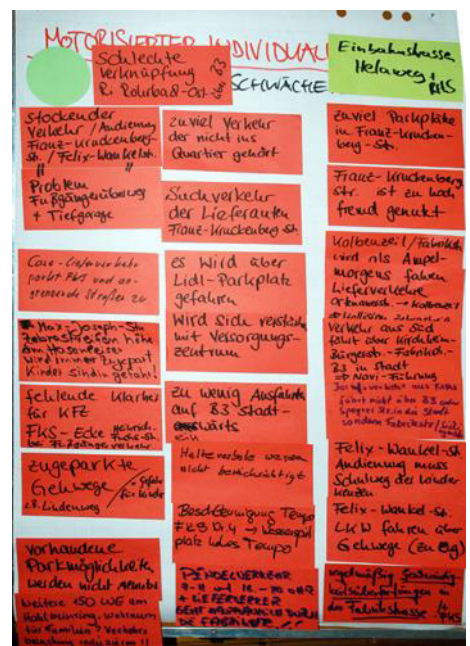 MOTORISIERTER INDIVIDUAL
SCHWÄCHE
Schlechte
Verknüpfung
Ri Rohrbach-Ost
über B3
Einbahnstrasse
Helaweg +
RHS
Stockender
Verkehr / Andienung
Franz-Kruckenberg-
Str. / Felix-Wankelstr.
Problem
Fußgängerüberweg
+ Tiefgarage
parkt FKS und an-
grenzende Straßen zu
Max-Joseph-Str.
Zebrastreifen Nähe
am Hasenleiser
wird immer zugepart
Kinder sind in gefahr!
fehlende Klarheit
für KFZ
FKS-Ecke
zugeparkte
Gehwege
= Gefahr
für Kinder
z.B. Lindenweg
vorhandene
Parkmöglichkeiten
werden nicht
weitere 450 WE am
für Familien? Verkehrs
zuviel Verkehr
der nicht ins
Quartier gehört
Suchverkehr
der Lieferanten
Franz-Kruckenberg-Str.
es wird über
Lidl-Parkplatz
gefahren
Wird sich verstärken
mit Versorgungs-
zentrum
zu wenig Ausfahrten
auf B3 Stadt-
Halteverbote werden
nicht berücksichtigt
Beschleunigung Tempo
platz hohes Tempo
PENDELVERKEHR
LIEFERVERKEHR
zuviel Parkplätze
in Franz-Krucken-
berg-Str.
Franz-Kruckenberg
Str. ist zu hoch
fremd genutzt
Kolbenzeil / Fabrikstr.
wird als Ampel-
morgens fahren
Lieferverkehre
Verkehr aus Süd
fährt über Kirchheim-
Bürgerstr.-Fabrikstr.-
B3 in Stadt
→ Navi-Führung
fährt nicht über B3 oder
Speyerer Str. in die Stadt
sondern Fabrikstr.
Felix-Wankel-Str
Andienung muss
Schulweg der Kinder
kreuzen
Felix-Wankel-Str.
LKW fahren über
Gehwege (zu eng)
regelmäßig
in der Fabrikstrasse